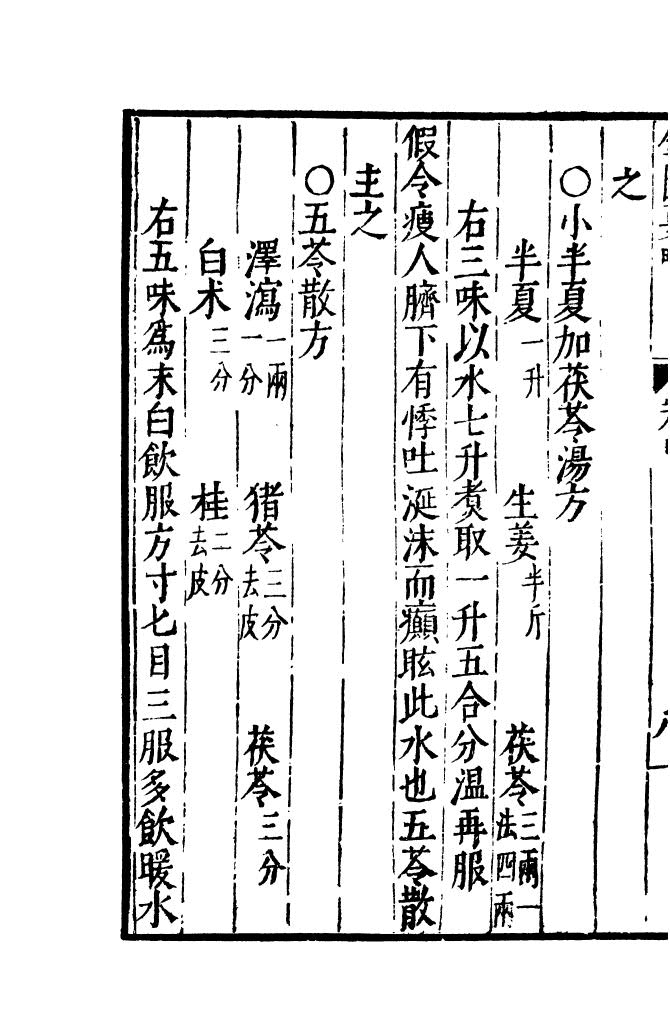 之
○小半夏加茯苓湯方
半夏一升　生姜半斤　茯苓三兩一法四兩
右三味以水七升煑取一升五合分温再服
假令瘦人臍下有悸吐涎沫而癲眩此水也五苓散
主之
○五苓散方
澤瀉一兩一分　猪苓三分去皮　茯苓三分
白术三分　桂二分去皮
右五味為末白飲服方寸匕日三服多飲暖水